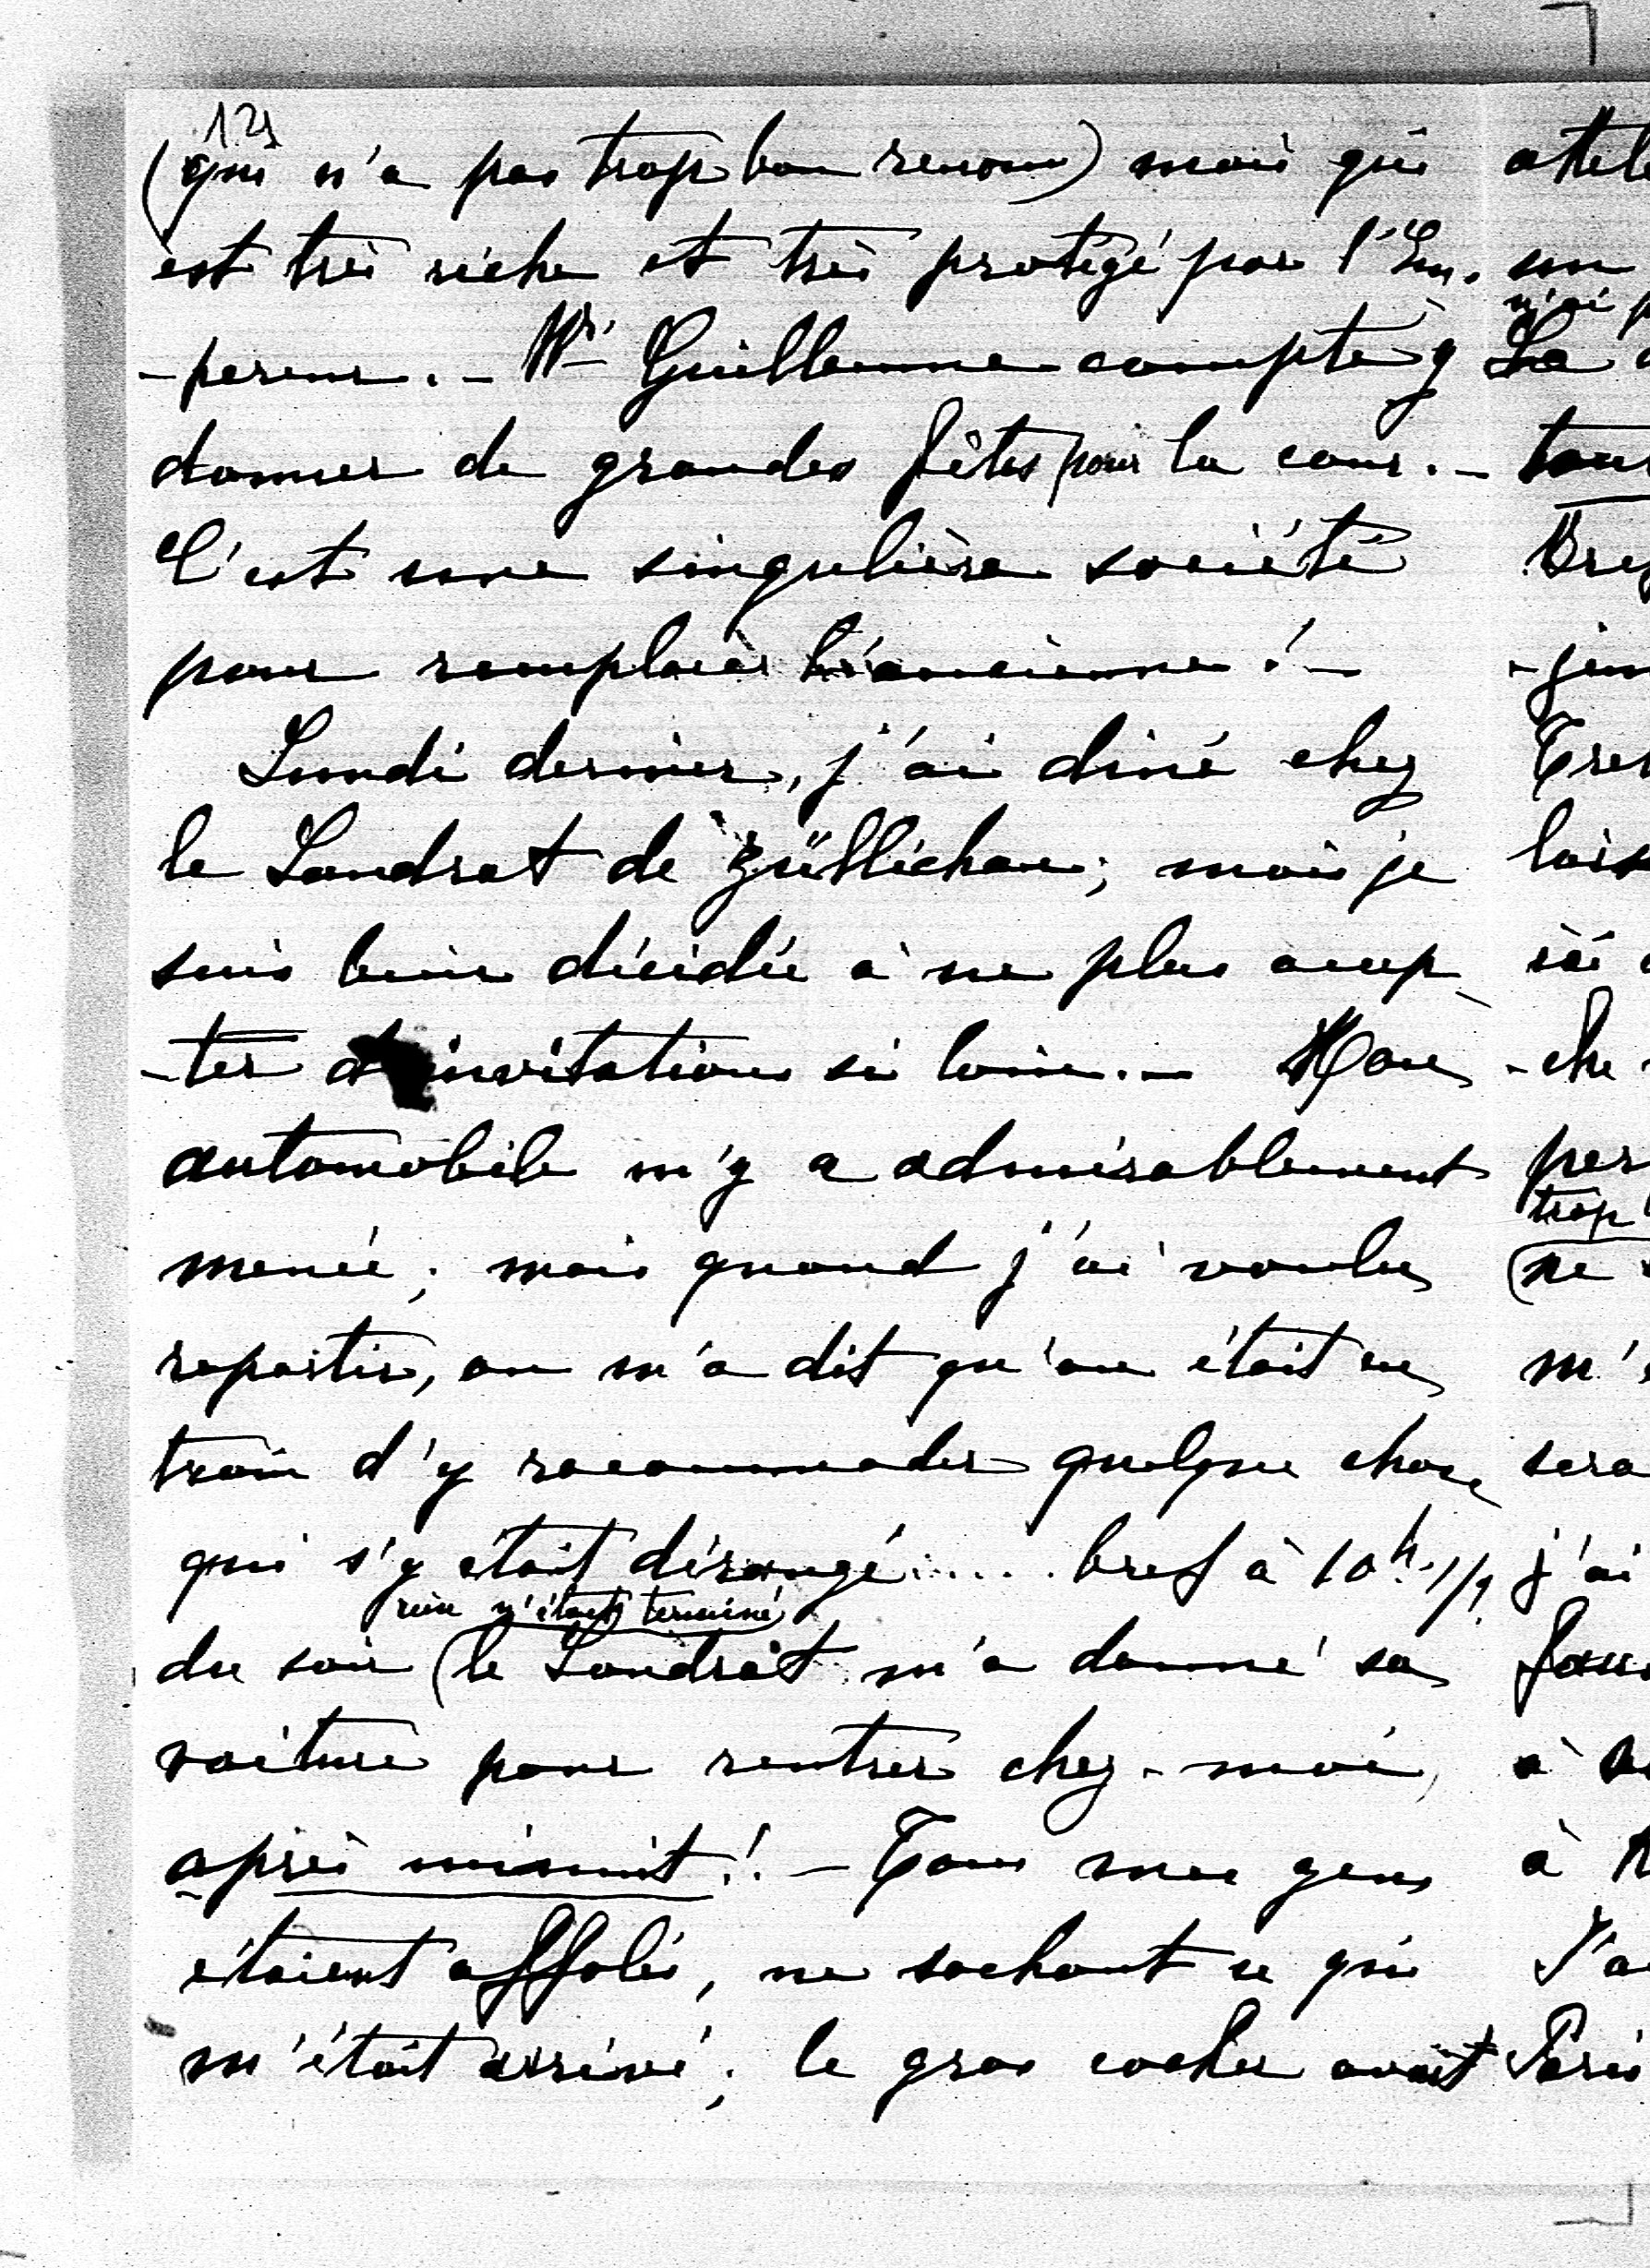 12)
(qui n'a pas trop bon renom) mais qui
est très riche et très protégé par l'Em.
-pereur. - Mr. Guillaume compte y
donner de grandes fêtes pour la cour. -
C'est une singulière société
pour remplacer l'ancienne ! -
Lundi dernier, j'ai diné chez
le Landrat de Züllichau; mais je
suis bien décidée à ne plus accep-
-ter d'invitations si loin. - Mon
automobile m'y a admirablement
menée; mais quand j'ai voulu
repartir, on m'a dit qu'on était en
train d'y raccommoder quelque chose
qui s'y était dérangé..... bref à 10h. 1/2
rien n'était terminé
du soir (le Landrat m'a donné sa
voiture pour rentrer chez-moi,
après minuit! - Tous mes gens
étaient affolés, ne sachant ce qui
m'était arrivé; le gros cocher avait